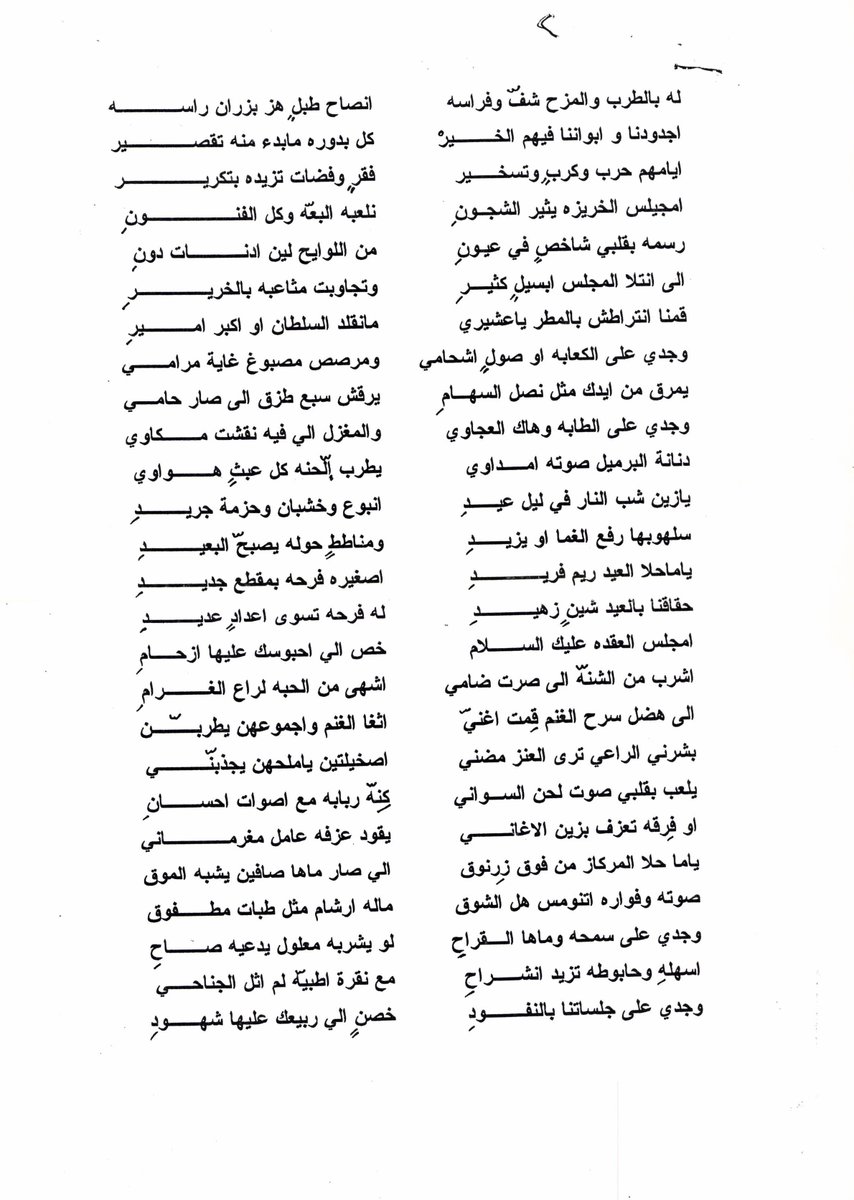 له بالطرب والمزح شفّ وفراسه انصاح طبلٍ هز بزران راســـــه
اجدودنا و ابواننا فيهم الخـــيرْ كل بدوره مابدء منه تقصـــير
ايامهم حرب وكربٍ وتسخير فقرٍ وفضات تزيده بتكريـــر
امجيلس الخريزه يثير الشجونِ نلعبه البعّه وكل الفنـــونِ
رسمه بقلبي شاخصٍ في عيونِ من اللوايح لين ادنـــات دونِ
الى انتلا المجلس ابسيلٍ كثيـرِ وتجاوبت مثاعبه بالخريـــرِ
قمنا انتراطش بالمطر ياعشيري مانقلد السلطان او اكبر امـــيرِ
وجدي على الكعابه او صولٍ اشحامي ومرصص مصبوغ غاية مرامـــي
يمرق من ايدك مثل نصل السهـامِ يرقش سبع طزق الى صار حامـــي
وجدي على الطابه وهاك العجاوي والمغزل الي فيه نقشت مـكاوي
دنانة البرميل صوته امـداوي يطرب إلّحنه كل عبثٍ هـــواوي
يازين شب النار في ليل عيـدِ انبوع وخشبان وحزمة جريـــدِ
سلهوبها رفع الغما او يزيـــدِ ومناططٍ حوله يصبحّ البعيـــدِ
ياماحلا العيد ريم فريـــدِ اصغيره فرحه بمقطع جديـــدِ
حقاقنا بالعيد شينٍ زهيـــدِ له فرحه تسوى اعدادٍ عديـــدِ
امجلس العقده عليك الســـلام خص الي احبوسك عليها ازحـــامِ
اشرب من الشنّه الى صرت ضامي اشهى من الحبه لراع الغـــرامِ
الى هضل سرح الغنم قِمت اغنيّ اثغا الغنم واجموعهن يطربـــنّ
بشرني الراعي ترى العنز مضني اصخيلتين ياملحهن يجذبنّـــي
يلعب بقلبي صوت لحن السـواني كِنّه ربابه مع اصوات احســـانِ
او فِرقه تعزف بزين الاغانـــي يقود عزفه عامل مغرمـــاني
ياما حلا المركاز من فوق زِرنوق الي صار ماها صافين يشبه الموق
صوته وفواره اتنومس هل الشوق ماله ارشام مثل طبات مطـفوق
وجدي على سمحه وماها الـقراحِ لو يشربه معلول يدعيه صـــاحِ
اسهلهِ وحابوطه تزيد انشـــراحِ مع نقرة اطبيّه لم اثل الجناحـي
وجدي على جلساتنا بالنفـــودِ خصنٍ الي ربيعك عليها شهـــودِ